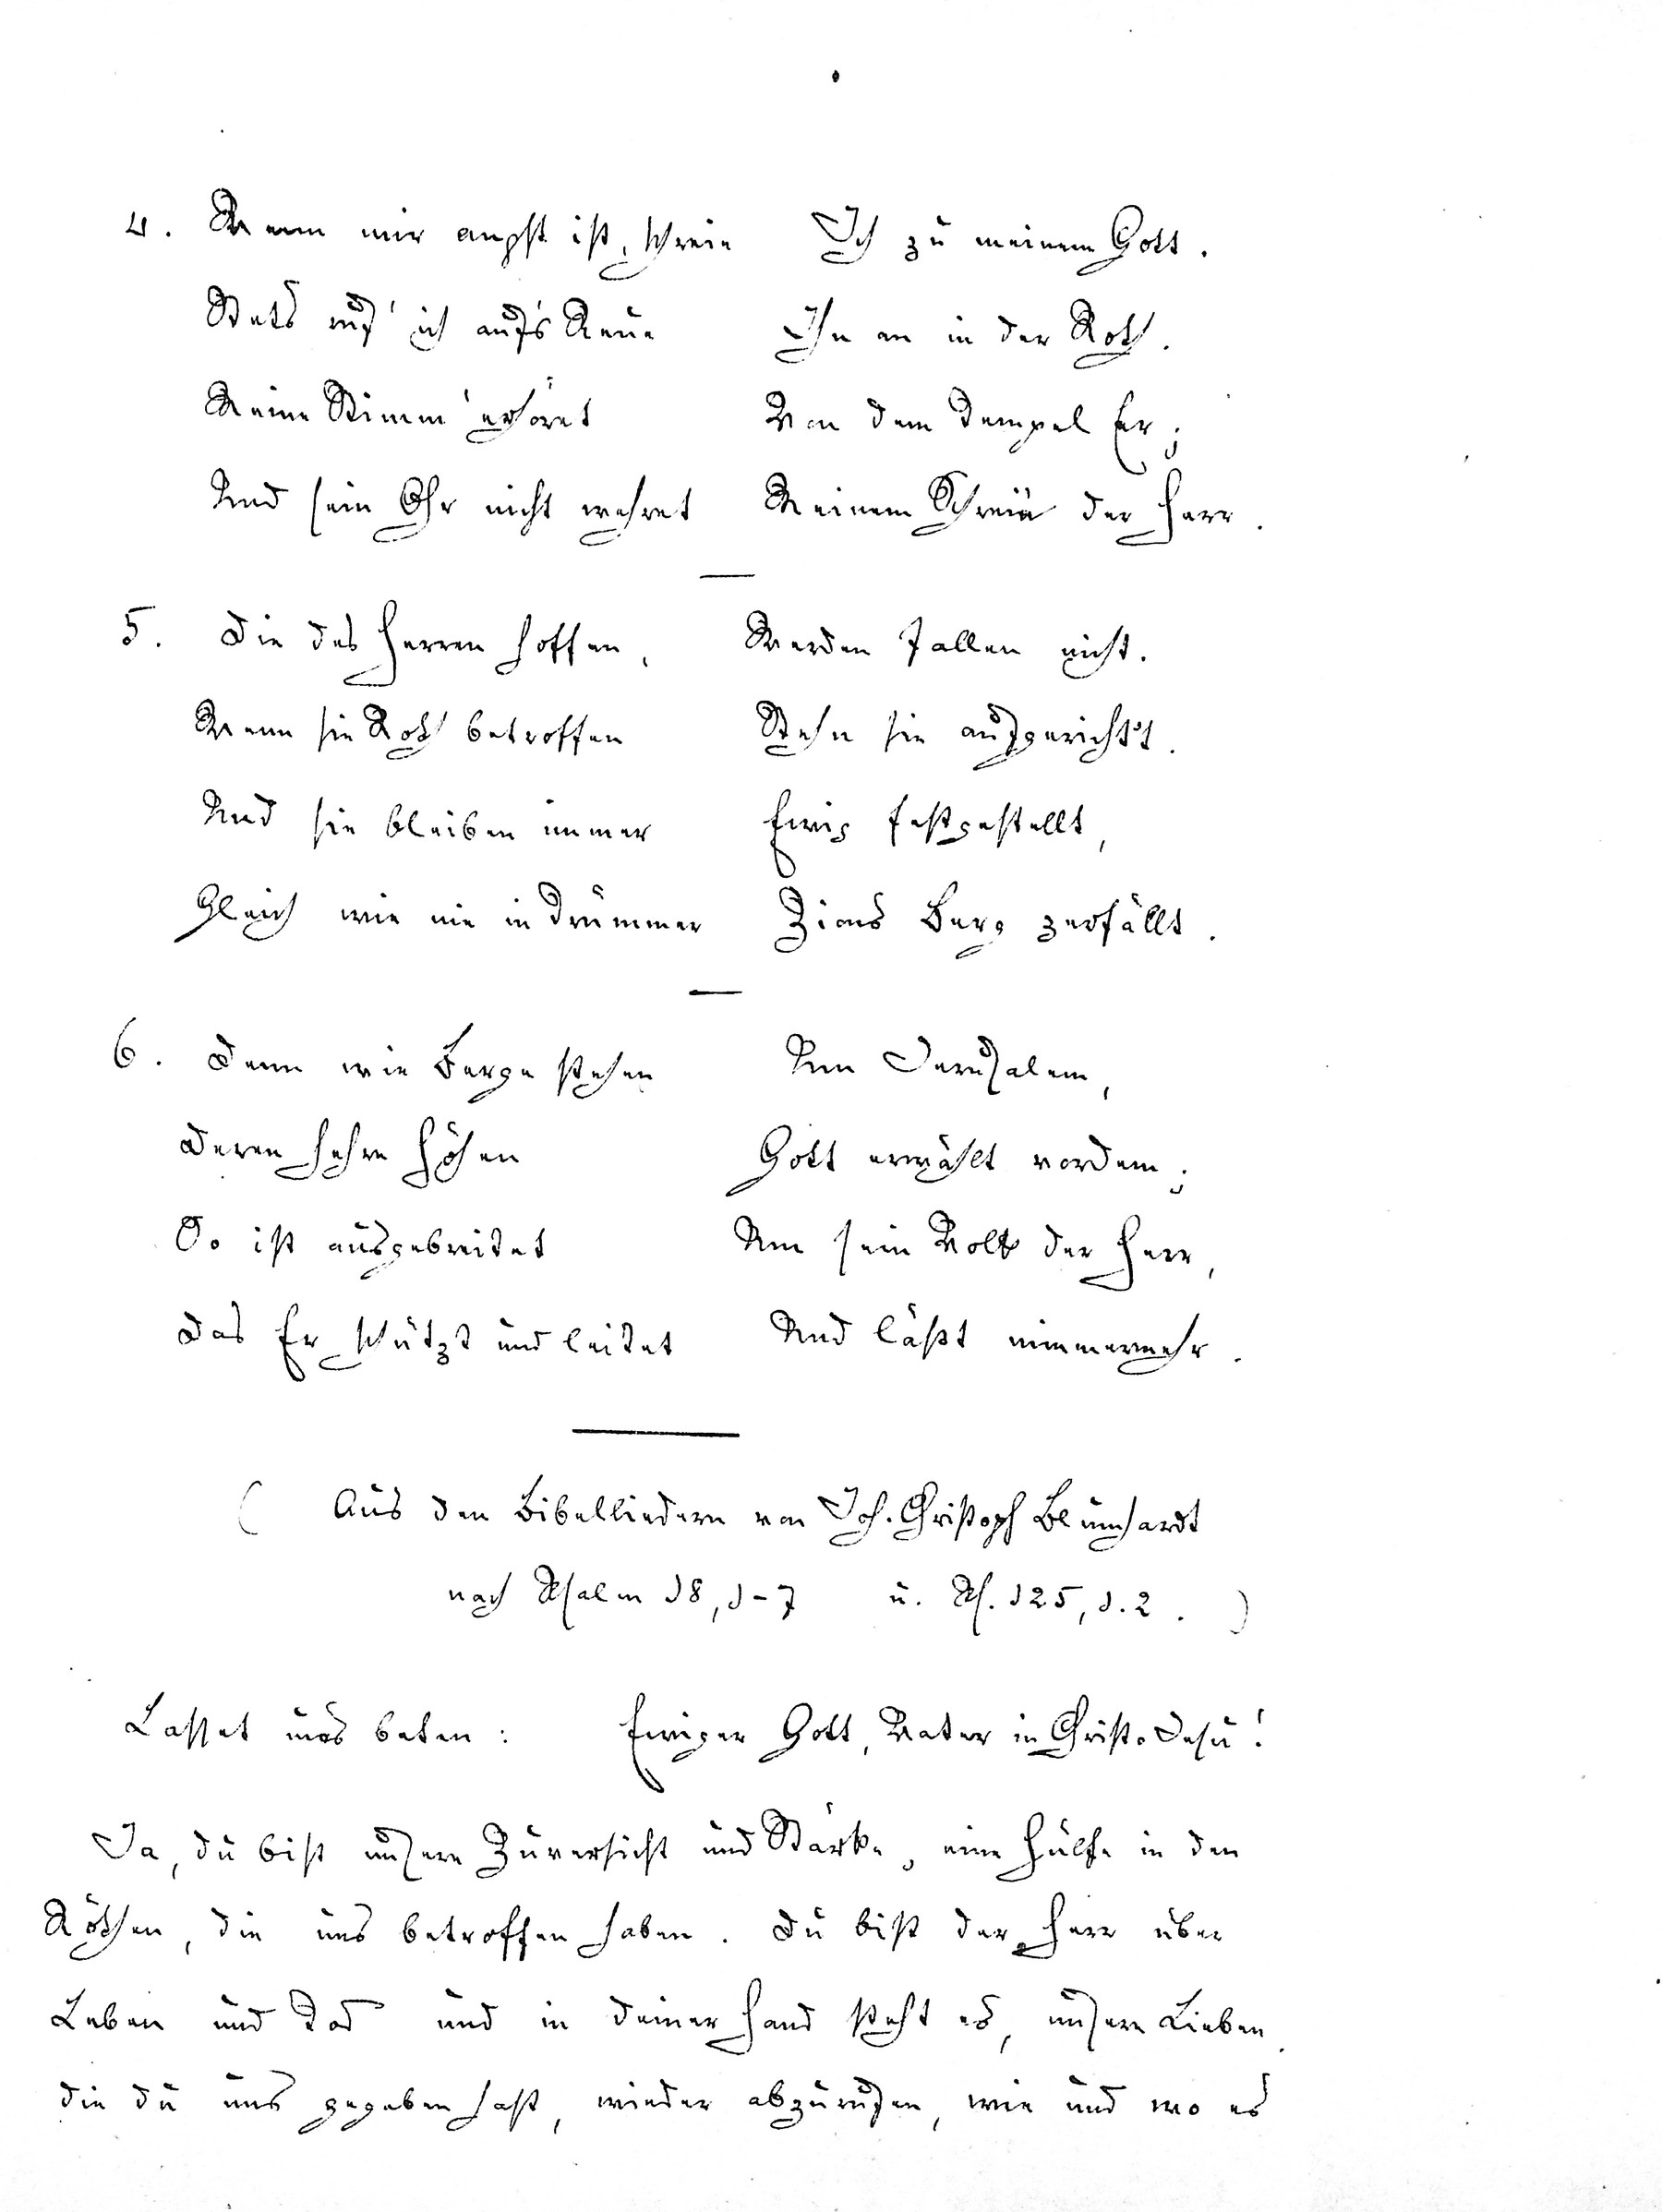 4. Wenn mir angst ist, schreie Ich zu meinem Gott.
Stets ruf' ich auf's Neue Ihn an in der Noth.
Meine Stimm' erhöret Von dem Tempel Er;
Und sein Ohr nicht wehret Meinem Schreien der Herr.
5. Die des Herren hoffen, Werden fallen nicht.
Wenn sie Noth betroffen Stehn sie aufgericht't.
Und sie bleiben immer Ewig festgestellt,
Gleich wie nie in Trümmer Zions Berg zerfällt.
6. Denn wie Berge stehen Um Jerusalem,
Deren hehre Höhen Gott erwählt vordem;
So ist ausgebreitet Um sein Volk der Herr,
Das Er schützt und leitet Und läßt nimmermehr.
( Aus den Bibelliedern von Joh. Christoph Blumhardt
nach Psalm 18, 1-7 u. Ps. 125, 1.2. )
Lasset uns beten: Ewiger Gott, Vater in Christo Jesu!
Ja, du bist unsere Zuversicht und Stärke, eine Hülfe in den
Nöthen, die uns betroffen haben. Du bist der Herr über
Leben und Tod und in deiner Hand steht es, unsere Lieben,
die du uns gegeben hast, wieder abzurufen, wie und wo es